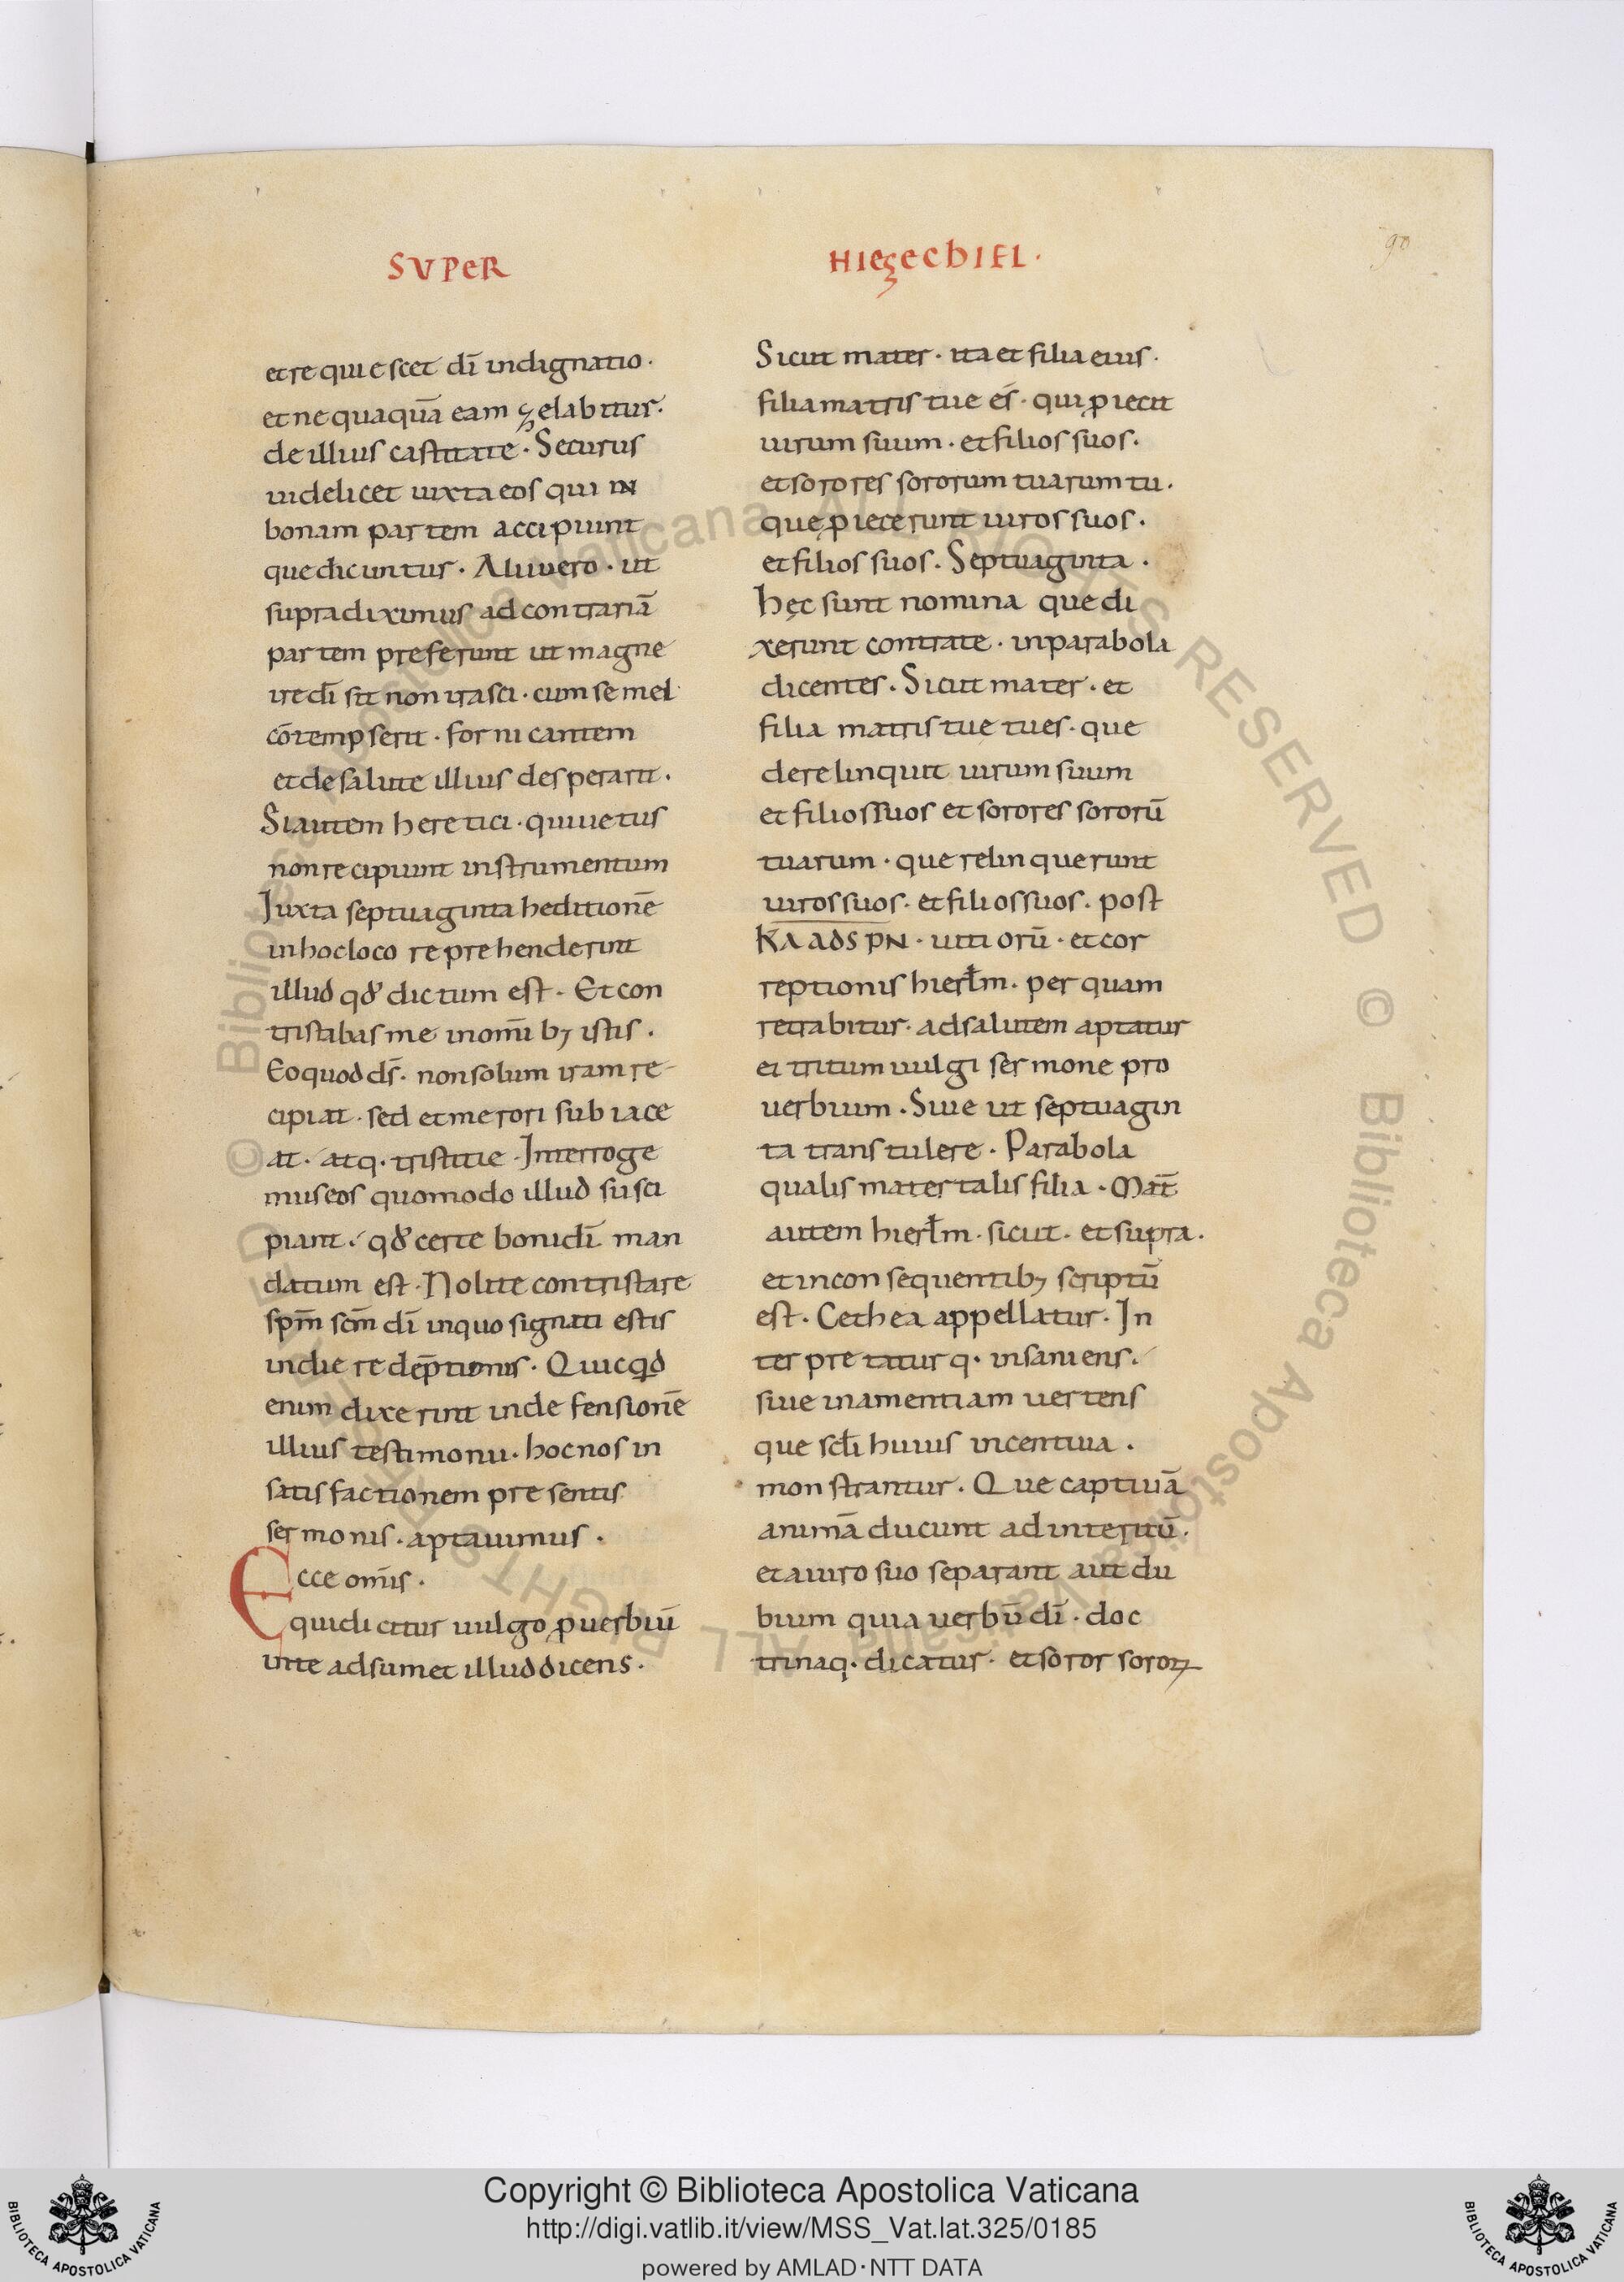 SVPER
et requiescet dī indignatio·
et nequaquā eam ȝelabitur·
de illius castitate· Securus
uidelicet iuxta eos qui IN
bonam partem accipiunt
que dicuntur· Alii uero· ut
supra diximus ad contrariā
partem preferunt ut magne
ire dī sit non irasci· cum semel
cōtempserit· fornicantem
et de salute illius desperarit·
Si autem heretici· qui uetus
non recipiunt instrumentum
Iuxta septuaginta heditionē
in hoc loco reprehenderint
illud qđ dictum est· Et con
tristabas me in omībꝫ istis·
Eo quod ds̄· non solum iram re-
cipiat· sed et merori subiace
at· atq· tristitie· Interroge
mus eos quomodo illud susci
piant· qđ certe boni dī man
datum est· Nolite contristare
spm̄ scm̄ dī in quo signati estis
in die redēptionis· Quicqd
enim dixerint in defensionē
illius testimonii· hoc nos in
satisfactionem presentis
sermonis· aptauimus·
Ecce omīs·
qui dicitur uulgo ꝓuerbiū
in te adsumet illud dicens·
HIEȝECHIEL·
Sicut mater· ita et filia eius·
filia matris tue es· qui ꝓiecit
uirum suum· et filios suos·
et sorores sororum tuarum tu·
que ꝓiecerunt uiros suos·
et filios suos· Septuaginta·
hęc sunt nomina que di
xerunt contra te· in parabola
dicentes· Sicut mater· et
filia matris tue tu es· que
derelinquit uirum suum
et filios suos et sorores sororū
tuarum· que relinquerunt
uiros suos· et filios suos· post
KA ADS PN· uitiorū· et cor
reptionis hierłm· per quam
retrabitur· ad salutem aptatur
ei tritum uulgi sermone pro
uerbium· Siue ut septuagin
ta transtulere· Parabola
qualis mater talis filia· Mat̄
autem hierłm· sicut· et supra·
et in consequentibꝫ scriptū
est· Cethea appellatur· In
terpretatur q· insaniens·
siue in amentiam uertens
que scłi huius incentiua·
monstrantur· Que captiuā
animā ducunt ad interitū·
et a uiro suo separant aut du
bium quia uerbū dī· doc
trinaq· dicatur· et soror soroꝝ
Copyright © Biblioteca Apostolica Vaticana
http://digi.vatlib.it/view/MSS_Vat.lat.325/0185
powered by AMLAD·NTT DATA